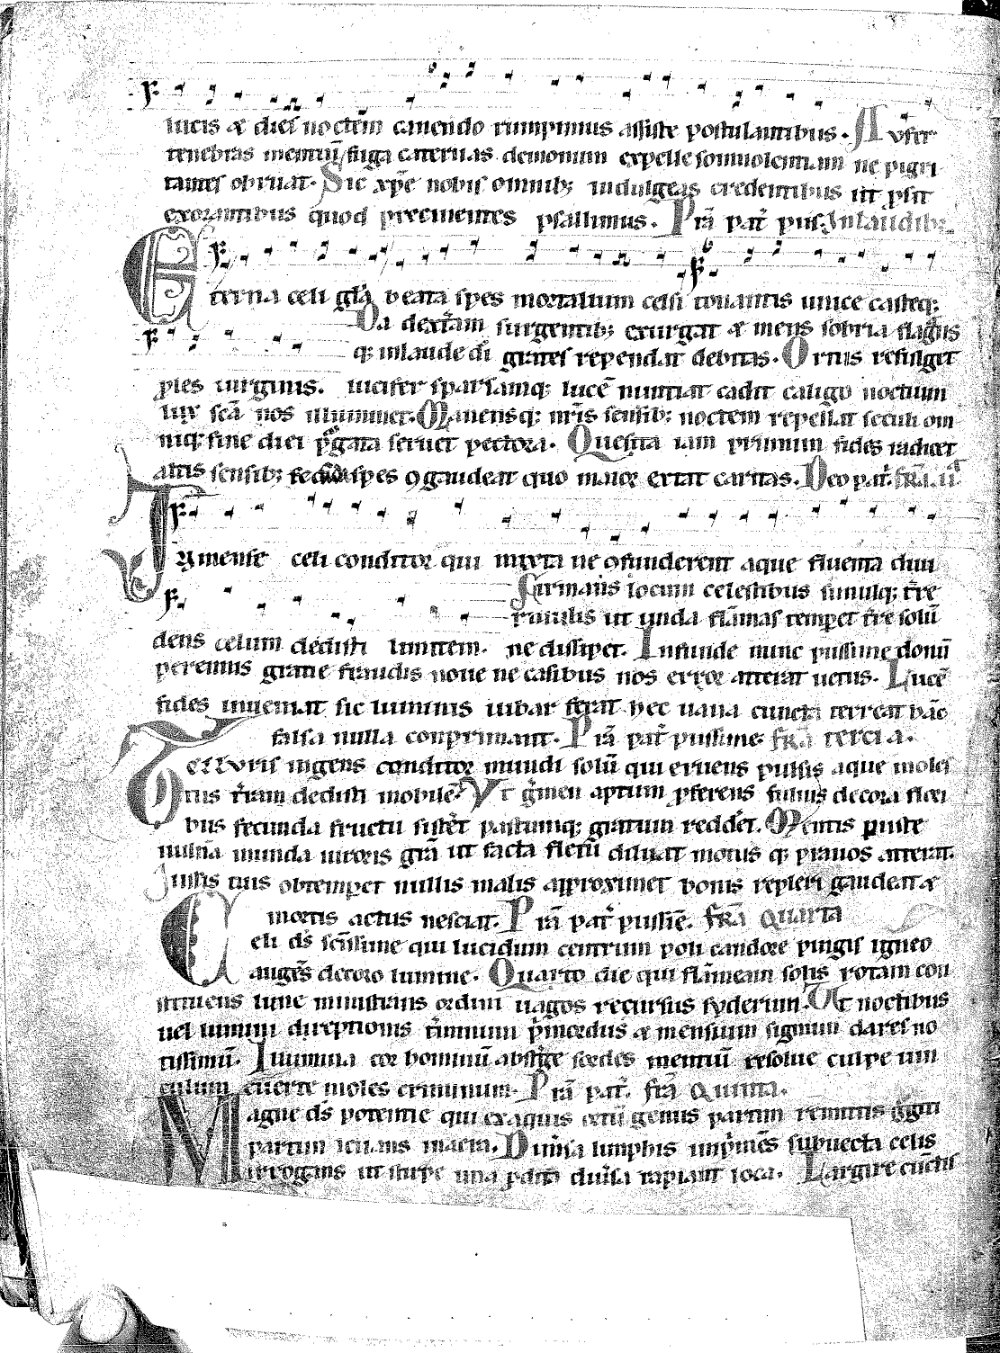 lucis & dies noctem canendo rumpimus assiste postulantibus. Aufer
tenebras mentiū fuga cateruas demonum expelle somnolentiam ne pigri
tantes obruat. Sic xp̄e nobis omnib; indulgeas credentibus ut p̄sit
exorantibus quod precinentes psallimus. P̄rā pat̄ piis. In laudib;
Eterna celi gl̄a beata spes mortalium celsi tonantis unice casteq;
Da dext̄am surgentib; exurgat & mens sobria flaḡns
q; in laude dī grates rependat debitas. Ortus refulget
ples uirginis. lucifer sparsamq; lucē nuntiat cadit caligo noctium
lux sc̄a nos illuminet. Manensq; nr̄is sensib; noctem repellat seculi om
niq; fine diei p̄gata seruet pectora. Quesita iam primum fides radicet
altis sensib; secunda spes 9gaudeat quo maior extat caritas. Deo pat̄. fr̄a. ii.
Iymense celi conditor qui mixta ne 9funderent aque fluenta diui
firmans locum celestibus simulq; t̄re
riuulis ut unda flāmas temperet t̄re solū
dens celum dedisti limitem. ne dissipet. Infunde nunc piissime donū
perennis gratie fraudis noue ne casibus nos error atterat uetus. Lucē
fides inueniat sic luminis iubar ferat hec uana cuncta terreat hāc
falsa nulla conprimant. P̄rā pat̄ piissime. fr̄a tercia.
Telluris ingens conditor mundi solū qui eruens pulsis aque moles
tiis t̄ram dedisti mobilē. Vt ḡmen aptum p̄ferens fuluis decora flori
bus fecunda fructu sisteret pastumq; gratum redderet. Mentis p̄uste
uulnā munda uiroris grā ut facta fletū diluat motus q; prauos atterat.
Iussis tuis obtemperet nullis malis approximet bonis repleri gaudeat &
mortis actus nesciat. P̄rā pat̄ piissīe. fr̄a quarta
Celi ds̄ sc̄issime qui lucidum centrum poli candore pingis igneo
augēs decoro lumine. Quarto die qui flāmeam solis rotam con
stituens lune ministrans ordini uagos recursus syderum. Ut noctibus
uel lumini direptionis t̄minum p̄mordiis & mensium signum dares no
tissimū. Illumina cor hominū absterge sordes mentiū resolue culpe uin
culum euerte moles criminum. P̄rā pat̄. fr̄a Quinta.
Magne ds̄ potentie qui ex aquis ortū genus partim remittis gurgiti
partim leuans in aera. Dimersa limphis imp̄mēs subuecta celis
irrogans ut stirpe una p̄dita diuersa rapiant loca. Largire cunctis